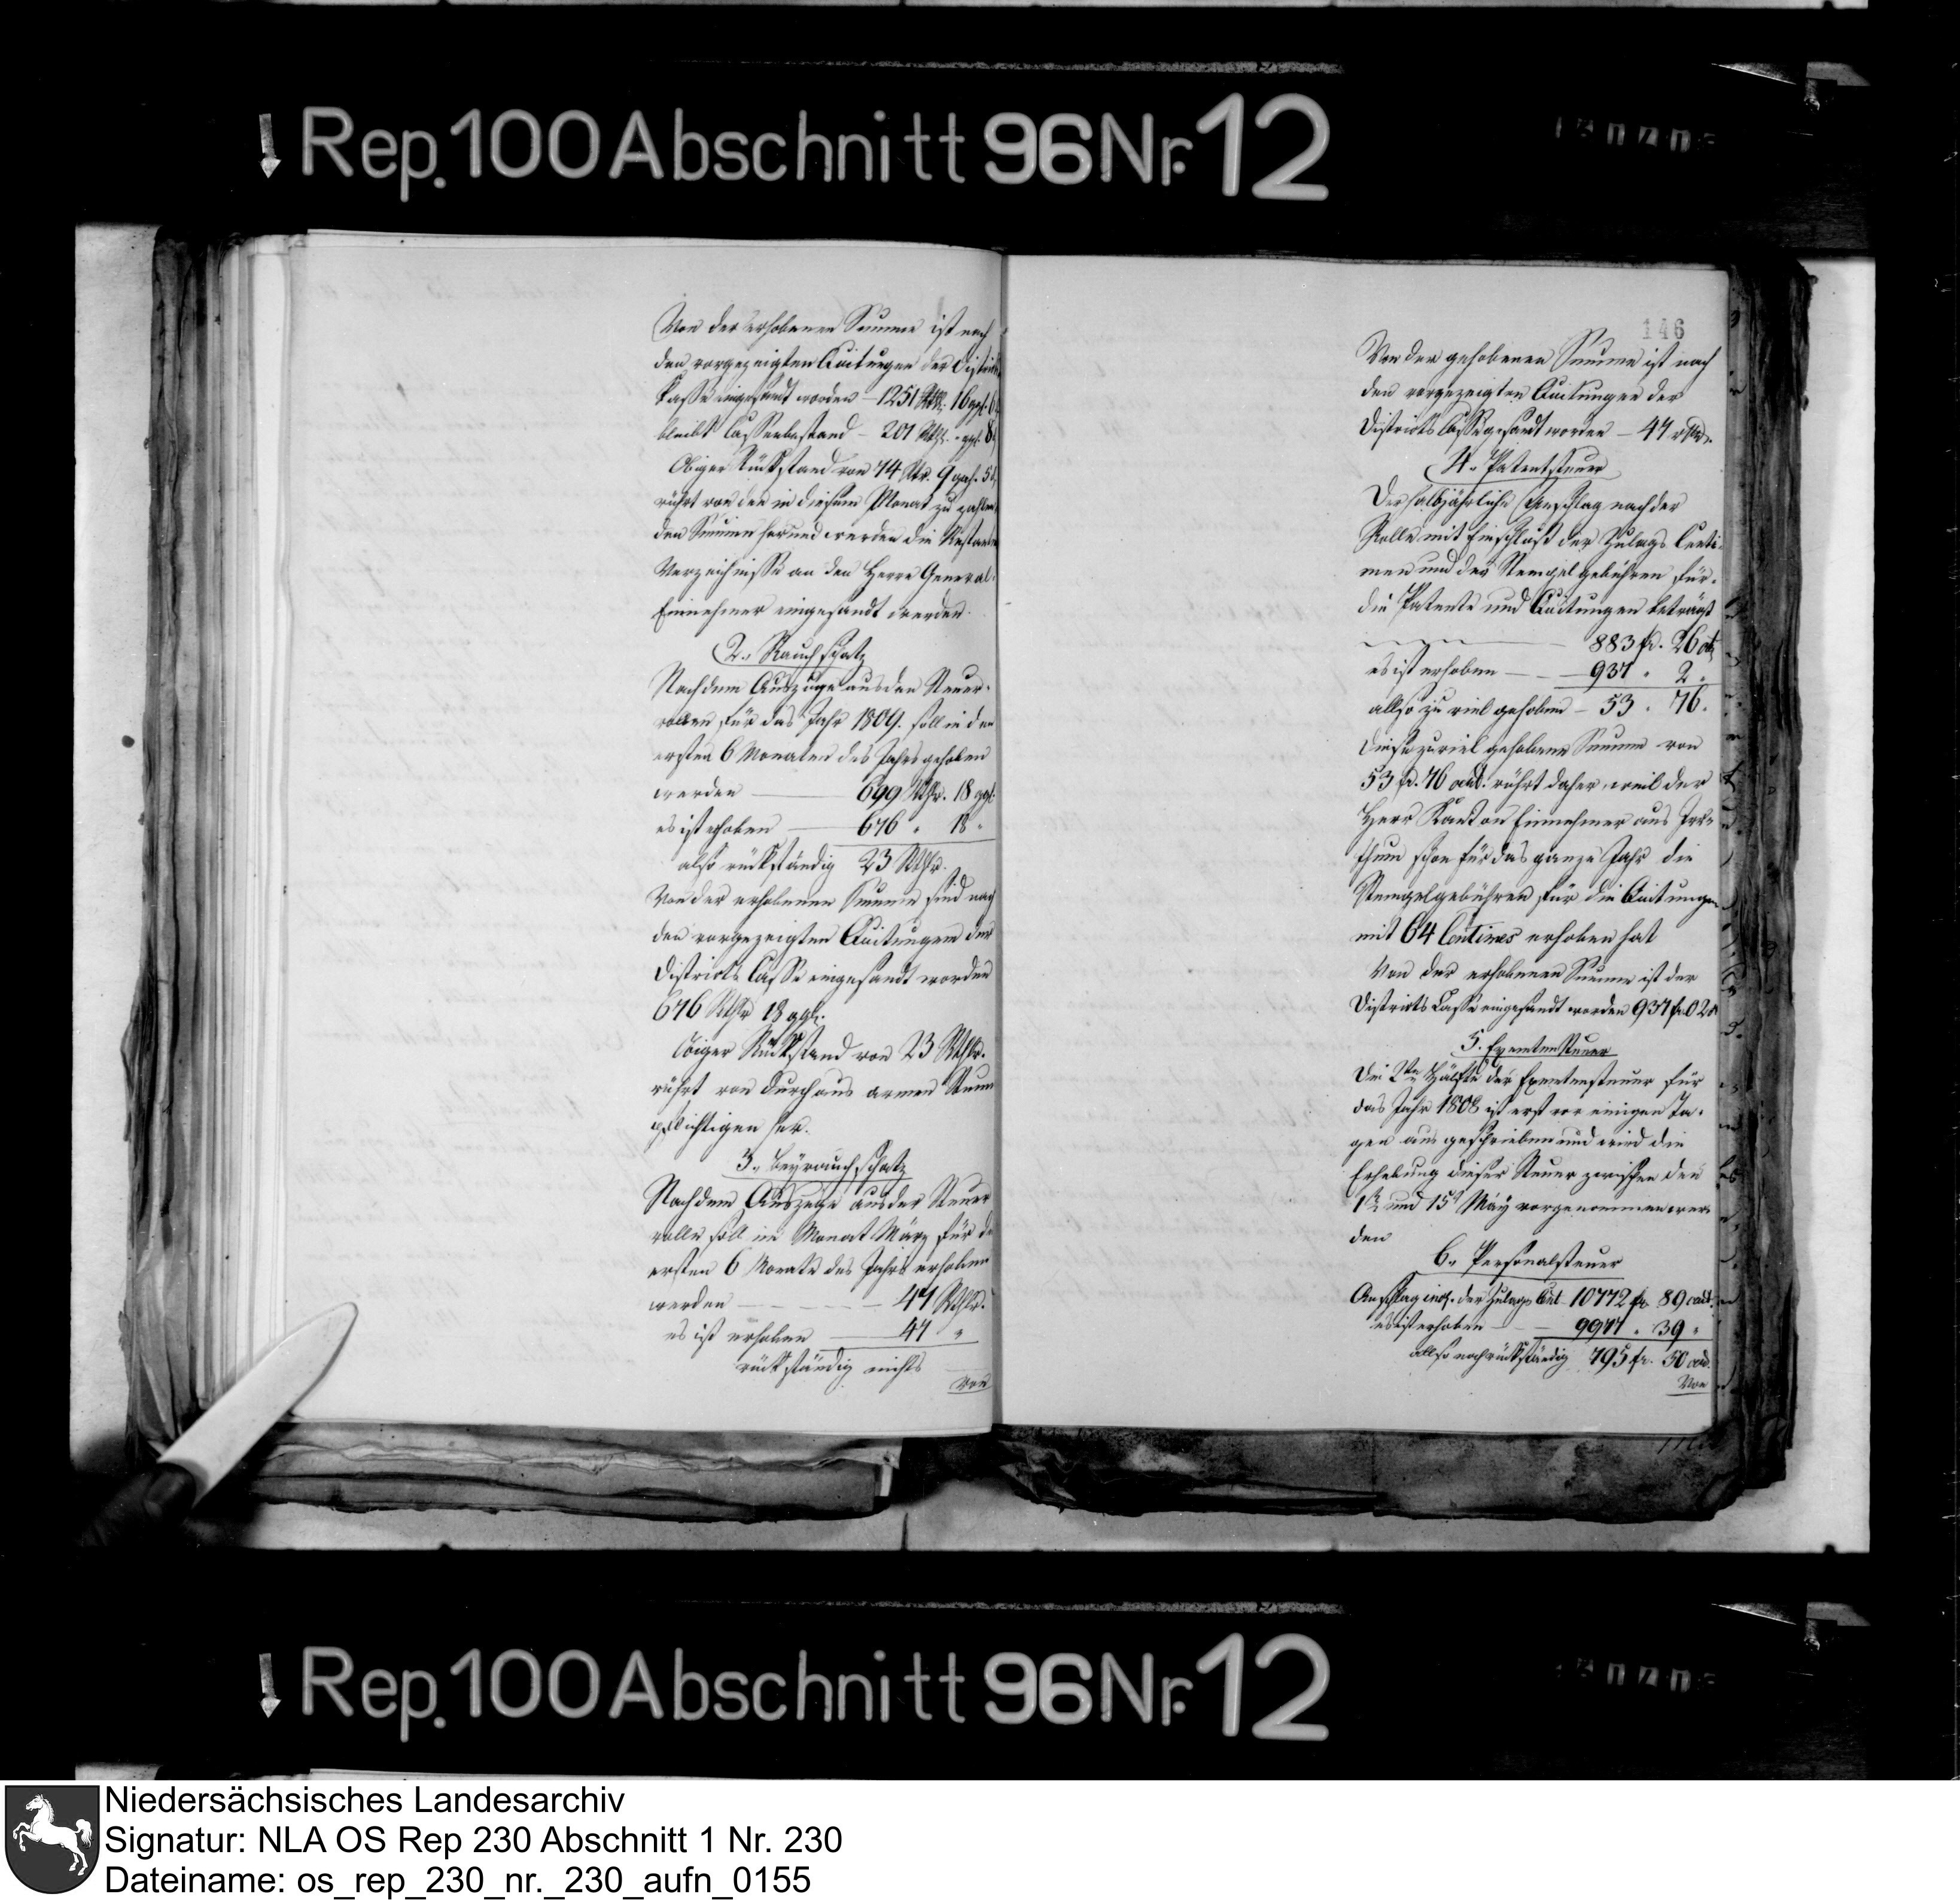 Rep. 100 Abschnitt 96 Nr. 12
Von der erhobenen Summe ist nach
den vorgezeigten Quitungen der District
Casse eingesandt worden – 1251 Rthlr. 16 ggl. 6
bleibt Cassenbestand – 201 Rthlr. " ggl. 8
Obiger Rückstand von 74 Rtr. 9 ggl. 5
rührt von den in diesem Monat zu zahlen
den Summen her und werden die Restanten
Verzeichnisse an den Herrn General-
Einnehmer eingesandt werden.
2., Rauchschatz
Nach dem Auszuge aus den Steuer-
rollen für das Jahr 1809. soll in den
ersten 6 Monaten des Jahrs gehoben
werden — 699 Rthlr. 18 ggl.
es ist erhoben — 676 " 18 "
also rückständig 23 Rthlr.
Von der erhobenen Summe sind nach
den vorgezeigten Quitungen der
Districts Casse eingesandt worden
676 Rthlr 18 ggl.
Obiger Rückstand von 23 Rthlr.
rührt von durchaus armen Steuer
pflichtigen her.
3., Beyrauchschatz
Nach dem Auszuge aus der Steuer
rolle soll im Monat März für die
ersten 6 Monate des Jahrs erhoben
werden — 47 Rthlr.
es ist erhoben — 47 "
rückständig nichts
Von
146
Von der gehobenen Summe ist nach
den vorgezeigten Quitungen der
Districts Casse gesandt worden – 47 rthlr.
4., Patentsteuer
Der halbjährliche Anschlag nach der
Rolle mit Einschluß der Zulags Centi-
men und der Stempelgebühren für
die Patente und Quitungen beträgt
883 fr. 26 ct
es ist erhoben — 937 " 2 "
allso zu viel gehoben – 53 " 76 "
Diese zuviel gehobene Summe von
53 fr. 76 cent. rührt daher, weil der
Herr Kanton Einnehmer aus Irr-
thum schon für das ganze Jahr die
Stempelgebühren für die Quitungen
mit 64 Centimes erhoben hat
Von der erhobenen Summe ist der
Districts Casse eingesandt worden 937 fr. 02
5. Exemtensteuer
Die 2te Hälfte der Exemtensteuer für
das Jahr 1808 ist erst vor einigen Ta-
gen ausgeschrieben und wird die
Erhebung dieser Steuer zwischen den
1n und 15n May vorgenommen wer-
den
6., Personalsteuer
Anschlag incl. der Zulags Cent – 10772 fr 89 cent.
es ist erhoben — 9977 " 39 "
allso noch rückständig 795 fr. 50 cent.
Von
Rep. 100 Abschnitt 96 Nr. 12
Niedersächsisches Landesarchiv
Signatur: NLA OS Rep 230 Abschnitt 1 Nr. 230
Dateiname: os_rep_230_nr._230_aufn_0155